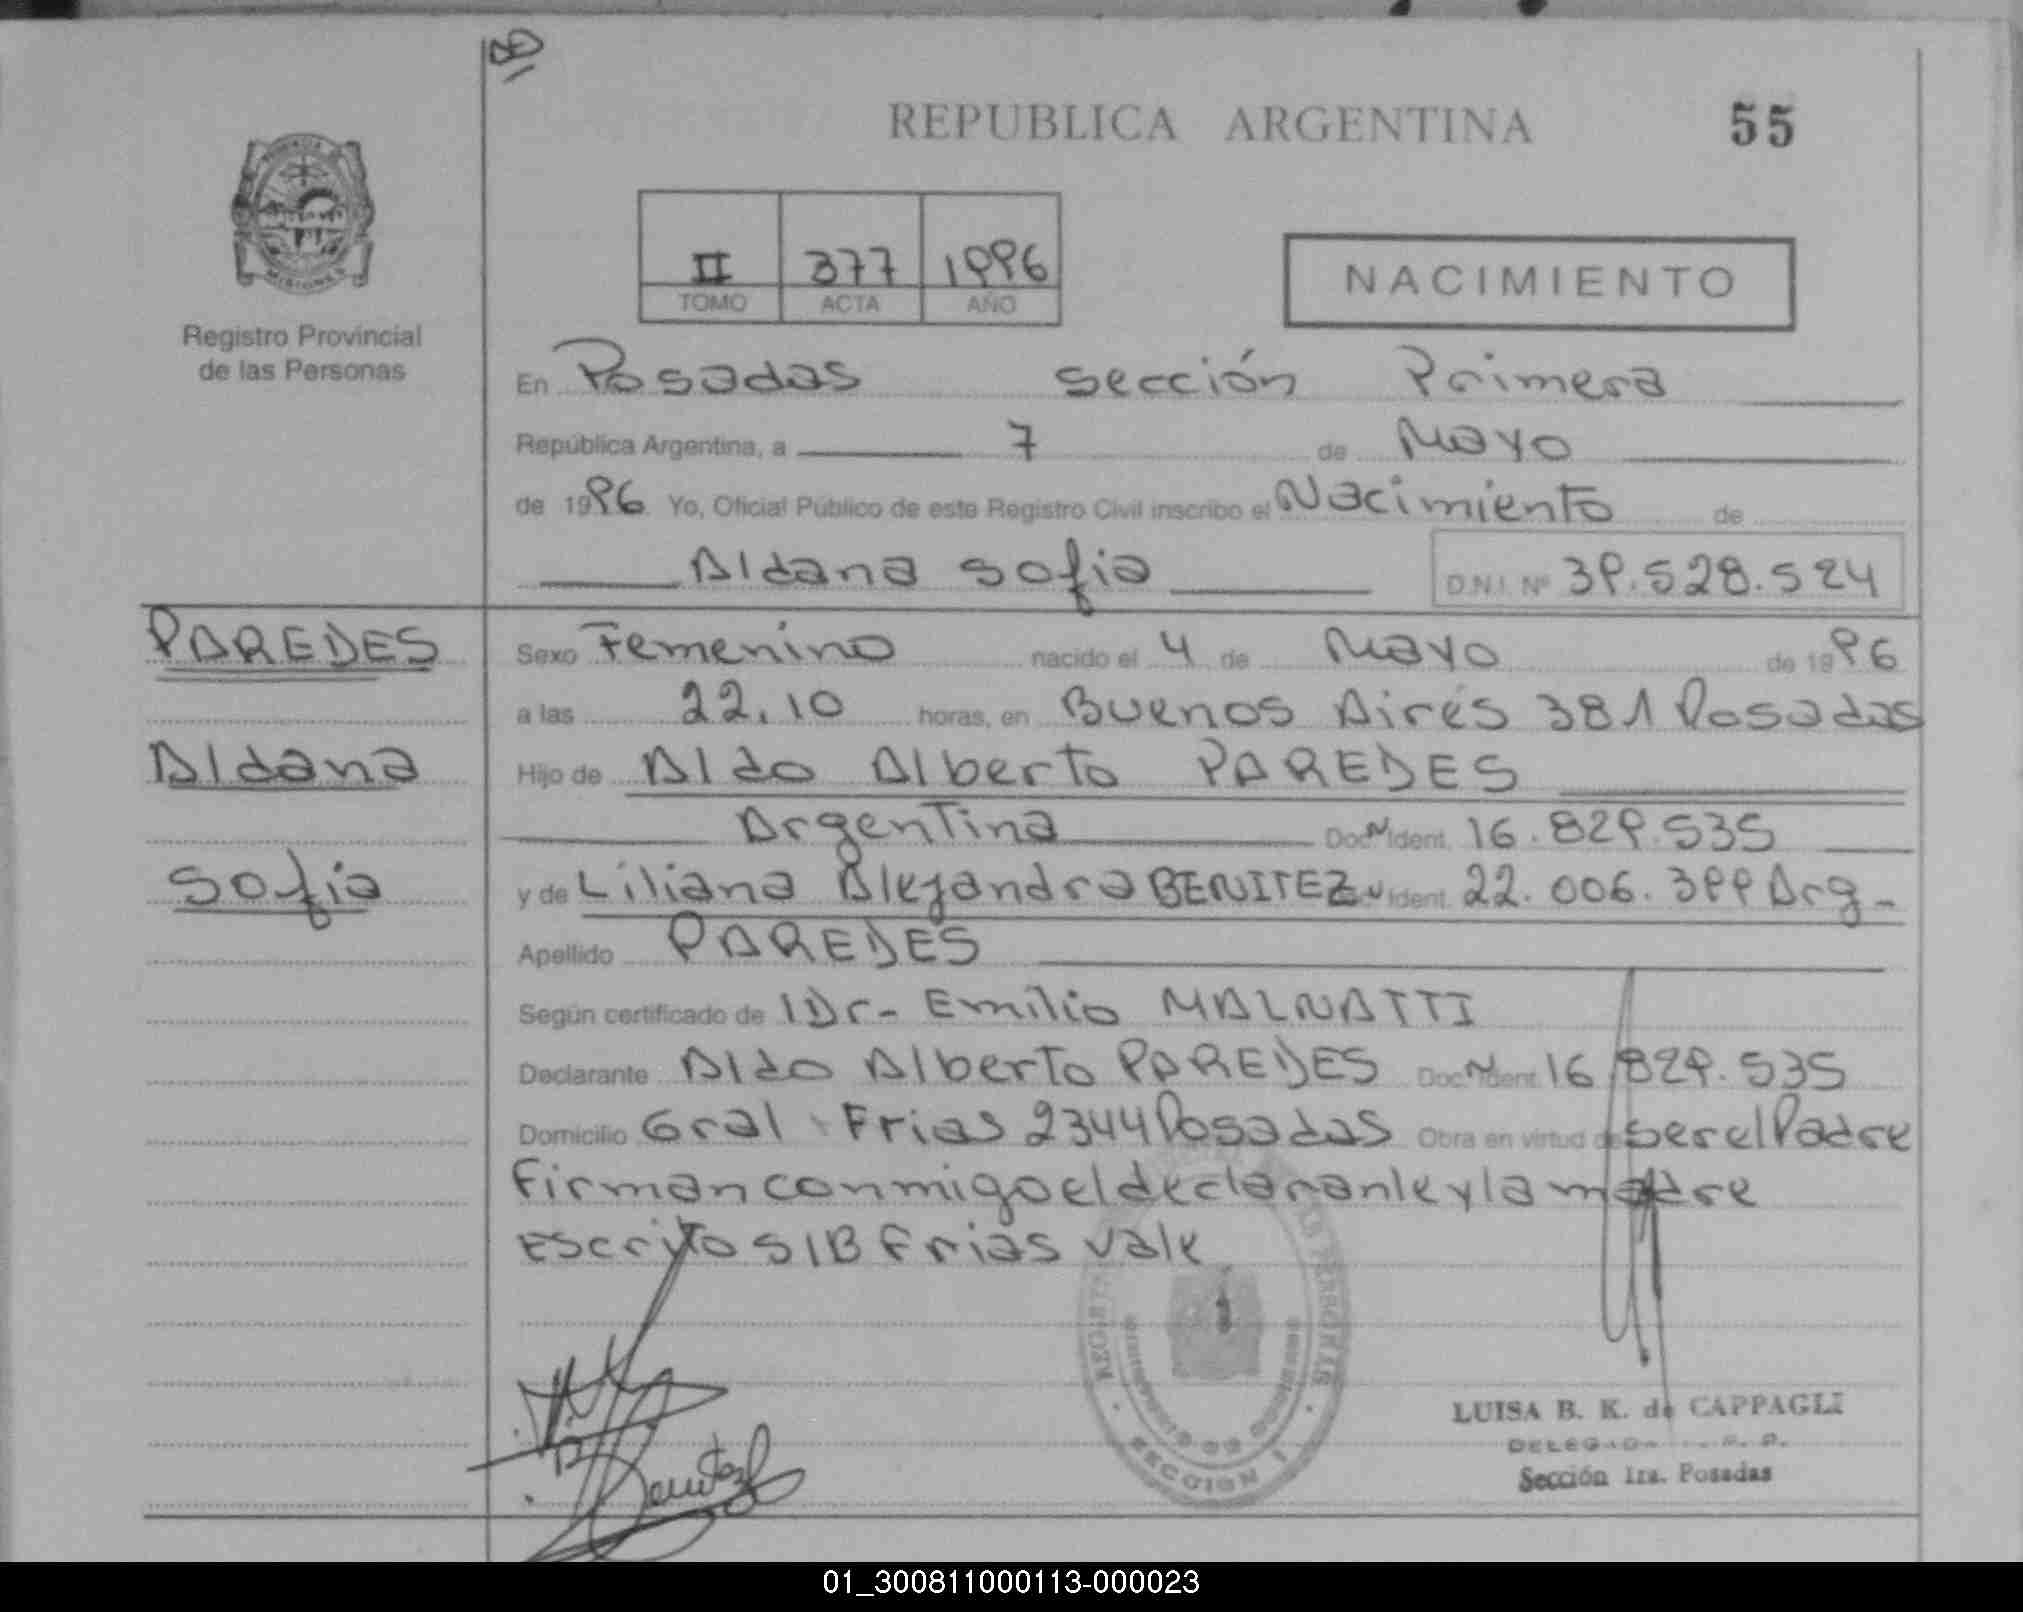 REPUBLICA ARGENTINA
55
II 377 1996
TOMO ACTA AÑO
NACIMIENTO
MISIONES
Registro Provincial
de las Personas
En Posadas sección Primera
República Argentina, a 7 de Mayo
de 1996 Yo, Oficial Público de este Registro Civil inscribo el Nacimiento de
Aldana Sofia D.N.I. Nº 39.528.524
PAREDES
Aldana
Sofia
Sexo Femenino nacido el 4 de Mayo de 1996
a las 22.10 horas, en Buenos Aires 381 Posadas
Hijo de Aldo Alberto PAREDES
Argentina Doc. N Ident. 16.829.535
y de Liliana Alejandra BENITEZ N Ident. 22.006.399 Arg-
Apellido PAREDES
Según certificado de Dr- Emilio MALNATTI
Declarante Aldo Alberto PAREDES Doc. N Ident. 16.829.535
Domicilio Gral Frias 2344 Posadas Obra en virtud de ser el Padre
Firman conmigo el declarante y la madre
Escrito S/B Frias vale
Benitez
SECCION 1
LUISA B. K. de CAPPAGLI
Sección 1ra. Posadas
01_300811000113-000023